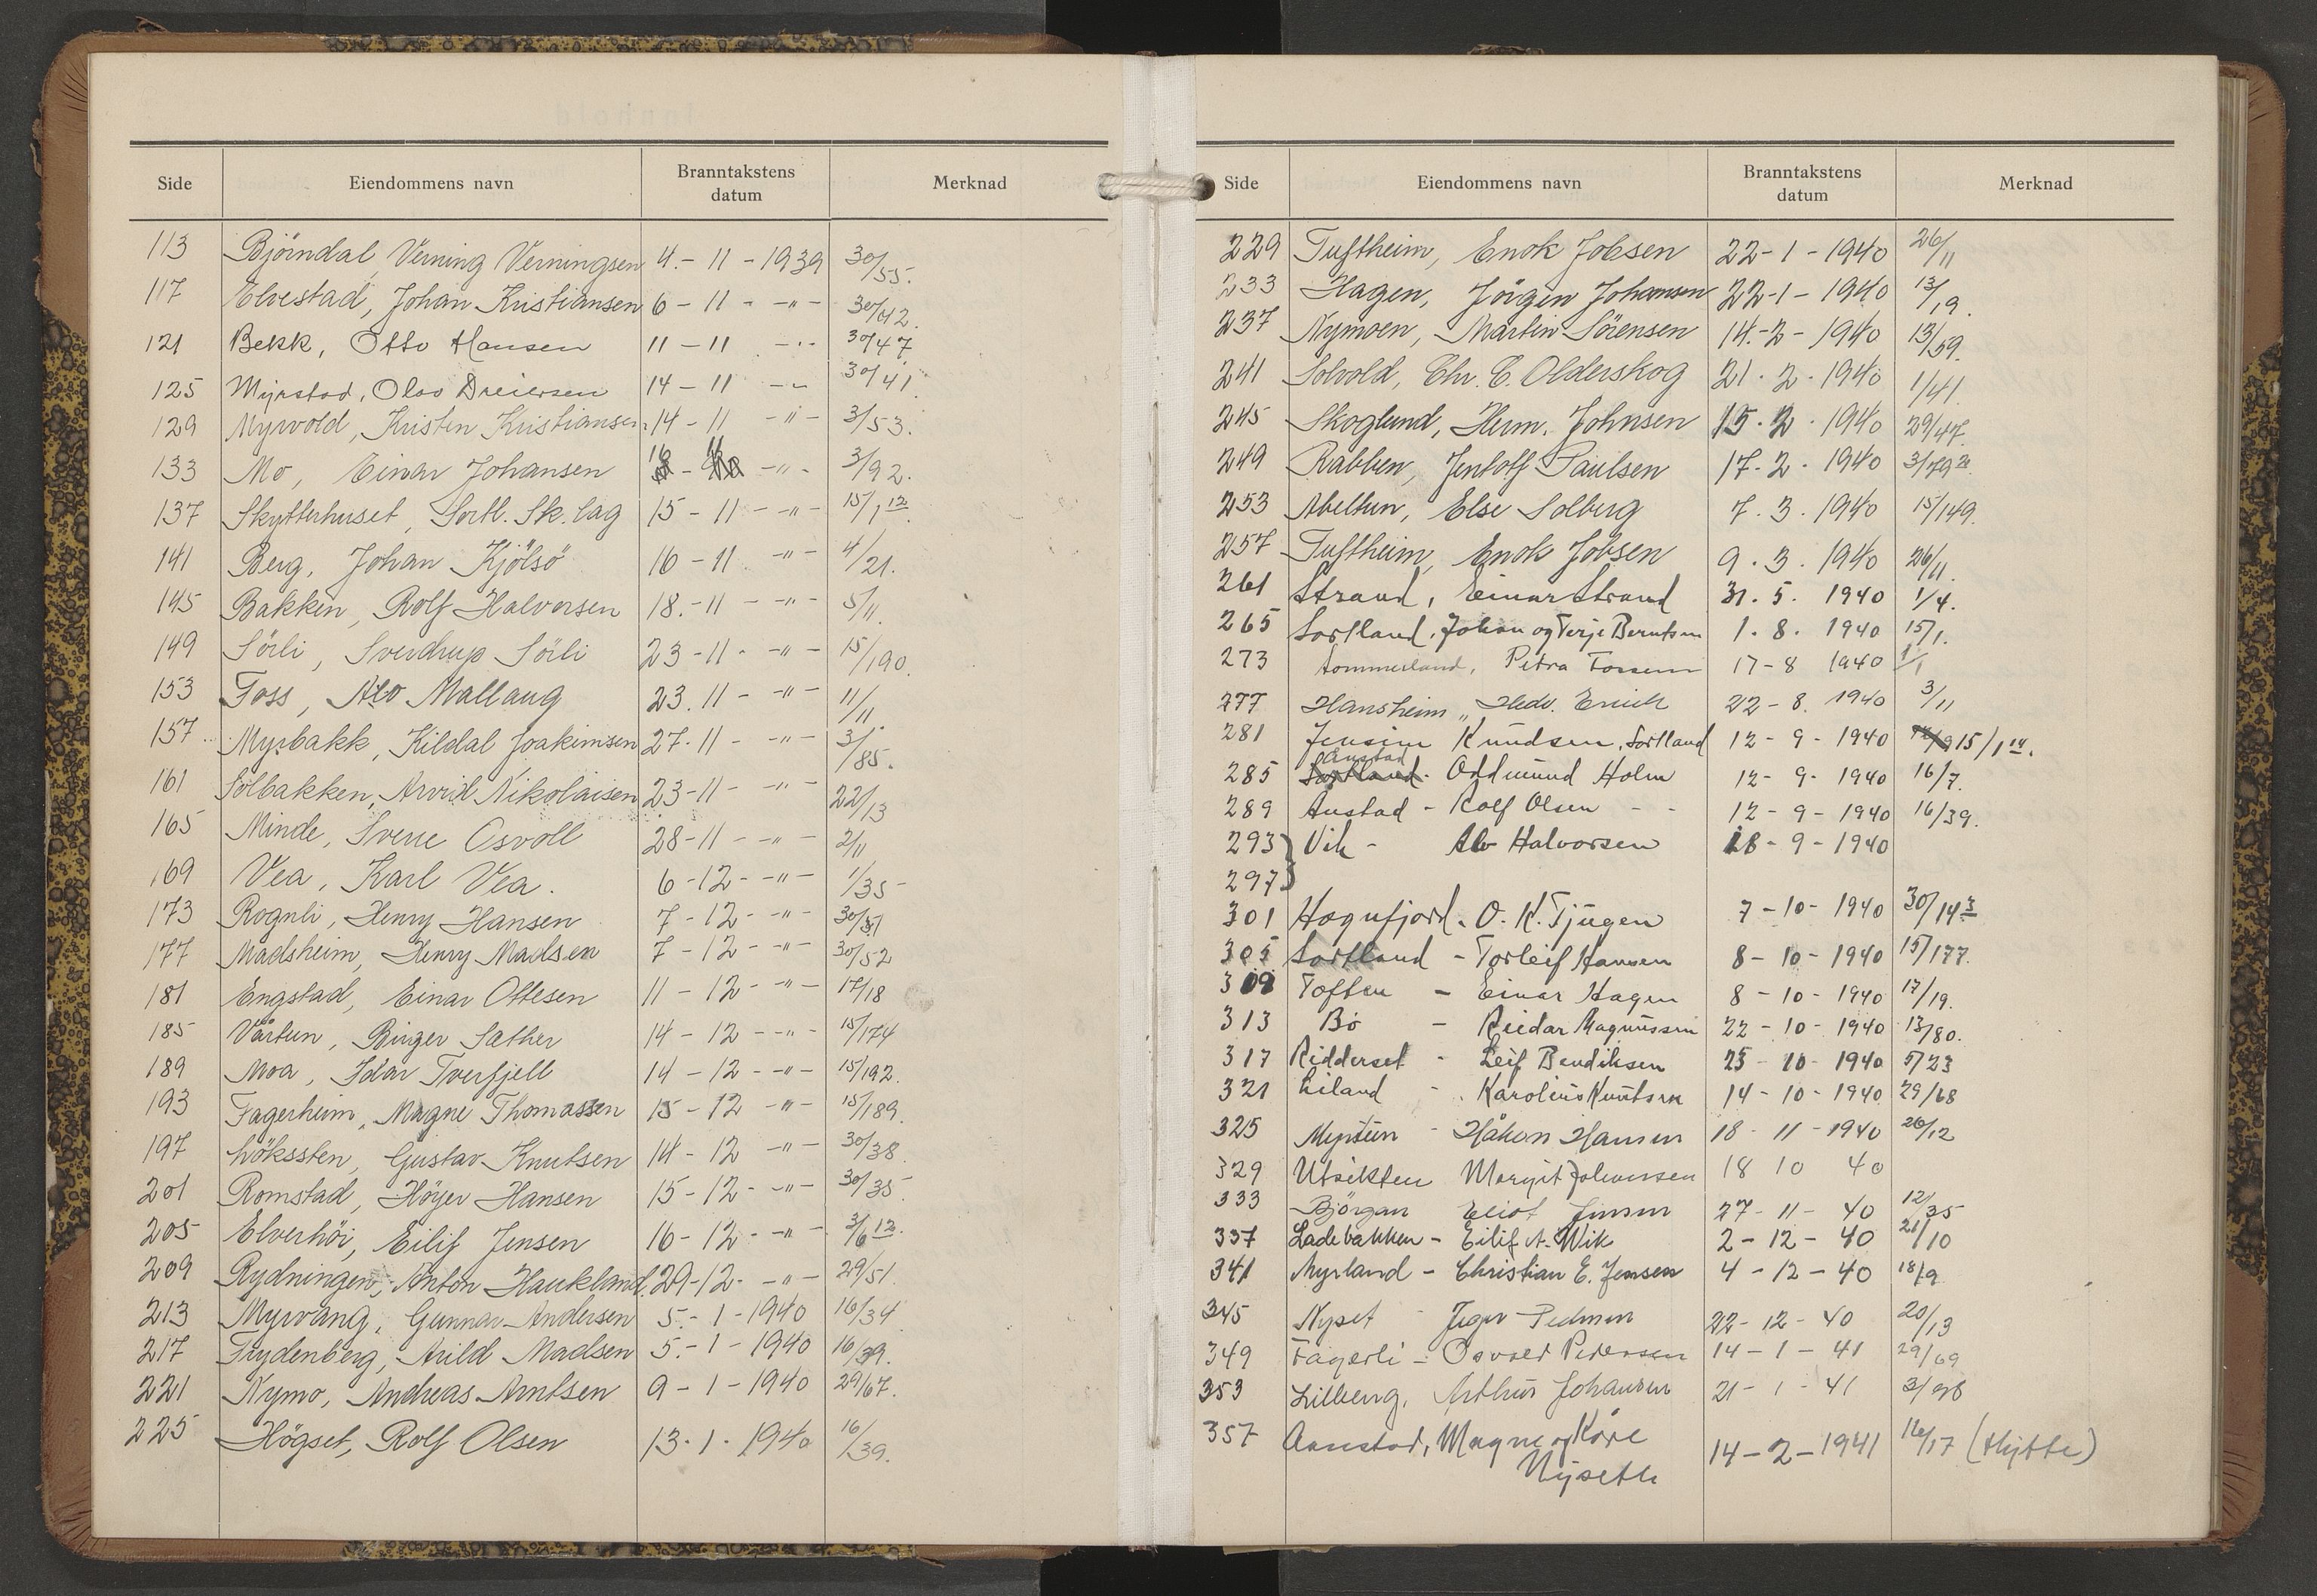 Side Eiendommens navn Branntakstens datum Merknad
113 Bjørndal, Verning Verningsen 4.- 11 - 1939 30/55.
117 Elvestad, Johan Kristiansen 6 - 11 - -"- 30/42.
121 Bekk, Otto Hansen 11 - 11 -"- 30/47
125 Myrstad, Olav Dreiersen 14 - 11 -"- 30/41.
129 Myrvold, Kristen Kristiansen 14 - 11 -"- 3/53.
133 Mo, Einar Johansen 16 - 11 -"- 3/92.
137 Skytterhuset, Sortl. Sk. lag 15 - 11 - -"- 15/1 12.
141 Berg, Johan Kjölsö 16 - 11. -"- 4/21.
145 Bakken, Rolf Halvorsen 18. - 11 - -"- 5/11.
149 Sörli, Sverdrup Sörli 23 - 11 - -"- 15/190.
153 Foss, Alv Mallaug 23. 11 - -"- 11/11.
157 Myrbakk, Kildal Joakimsen 27. 11 - -"- 3/85.
161 Solbakken, Arvid Nikolaisen 23 - 11 - -"- 22/13
165 Minde, Sverre Osvoll 28 - 11 - -"- 2/11
169 Vea, Karl Vea. 6 - 12 - -"- 1/35
173 Rognli, Henry Hansen 7 - 12 - -"- 30/51
177 Madsheim, Henry Madsen 7 - 12 - -"- 30/52
181 Engstad, Einar Ottesen 11 - 12 - -"- 17/18
185 Vårtun, Birger Sæther 14 - 12 - -"- 15/174
189 Moa, Idar Tverfjell 14 - 12 - -"- 15/192.
193 Fagerheim, Magne Thomassen 15 - 12 -"- 15/189.
197 Lökssten, Gustav Knutsen 14 - 12 -"- 30/38.
201 Romstad, Höyer Hansen 15 - 12 - -"- 30/35.
205 Elverhöi, Eilif Jensen 16 - 12 - -"- 3/6 12.
209 Rydningen, Anton Haukland. 29 - 12 - -"- 29/51.
213 Myrvang, Gunnar Andersen 5. - 1 - 1940 16/34
217 Frydenberg, Arild Madsen 5. - 1 - 1940 16/39.
221 Nymo, Andreas Arntsen 9 - 1 - 1940 29/67.
225 Högset, Rolf Olsen 13. 1. 1940 16/39.
Side Eiendommens navn Branntakstens datum Merknad
229 Tuftheim, Enok Jobsen 22 - 1 - 1940 26/11
233 Hagen, Jörgen Johansen 22 - 1 - 1940 13/19.
237 Nymoen, Martin Sörensen 14. - 2 - 1940 13/59.
241 Solvold, Chr. C. Olderskog 21. 2. 1940 1/41.
245 Skoglund, Herm. Johnsen 15. 2. 1940 29/47.
249 Rabben, Jentoft Paulsen 17. 2. 1940
253 Abeltun, Else Solberg 7. 3. 1940 15/149.
257 Tuftheim, Enok Jobsen 9. 3. 1940 26/11.
261 Strand, Einar Strand 31. 5. 1940 1/4.
265 Sortland, Johan og Terje Berntsen 1. 8. 1940 15/1.
273 Sommerland, Petra Fossem 17 - 8 1940 1/1
277 Hansheim, Hedv. 22 - 8. 1940 3/11
281 Jensine Knudsen, Sortland 12 - 9 - 1940 15/1 14.
285 Anstad Sortland - Oddmund Holm 12 - 9 - 1940 16/7.
289 Anstad - Rolf Olsen - - 12 - 9 - 1940 16/39.
293 Vik - Alv Halvorsen 18 - 9 - 1940
297
301 Hognfjord. O. K. Tjugen 7 - 10 - 1940 30/14 3
305 Sortland - Torleif Hansen 8 - 10 - 1940 15/177.
309 Toften - Einar Hagen 8 - 10 - 1940 17/19.
313 Bö - Reidar Magnussen 22 - 10 - 1940 13/80.
317 Ridderset - Leif Bendiksen 25 - 10 - 1940 5/23
321 Eiland - Karolius Knutsen 14 - 10 - 1940 29/68
325 Myrtun - Håkon Hansen 18 - 11 - 1940 26/12
329 Utsikten Margit Johansen 18 10 40
333 Björgan Eliot Jensen 27 - 11 - 40 12/35
337 Ladebakken - Eilif A. Wik 2 - 12 - 40 21/10
341 Myrland - Christian E. Jensen 4 - 12 - 40 18/9
345 Nyset - Jeger Pedersen 22 - 12 - 40 20/13
349 Fagerli - Osvald Pedersen 14 - 1 - 41 29/69
353 Lilleng, Arthur Johansen 21 - 1 - 41 3/98
357 Aanstad, Magne og Kåre 14 - 2 - 1941 16/17 (Hytte)
Nyseth